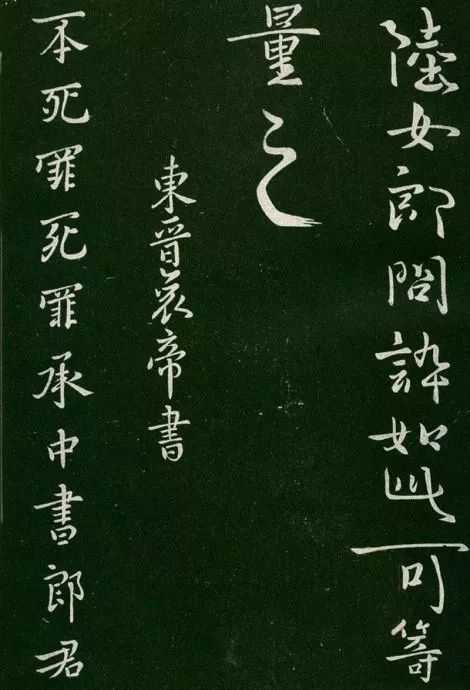 陸女郎問訴如此可籌
量之
東晉哀帝書
丕死罪死罪承中書郎君